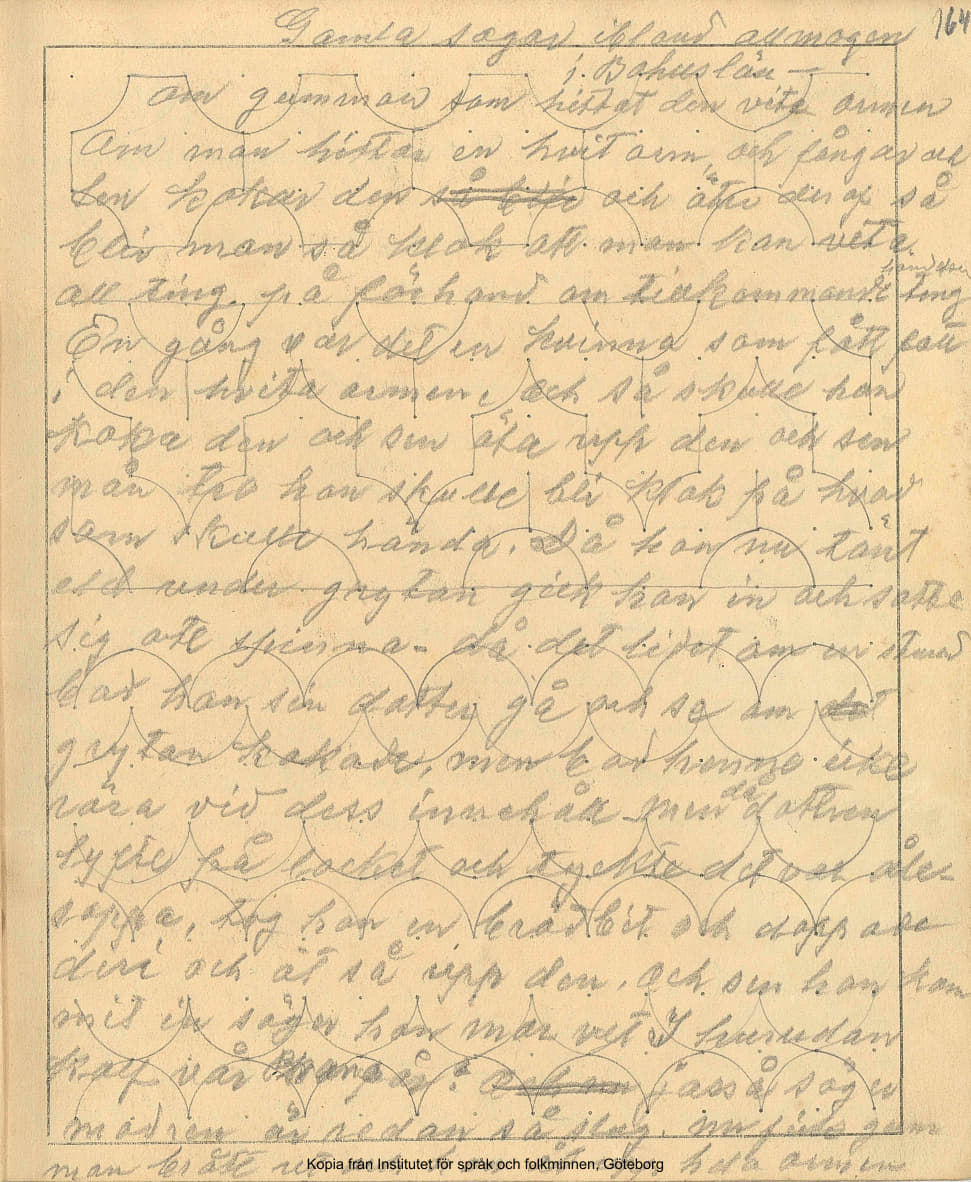 Gamla sagor ibland allmogen 164
i Bohuslän —
om gumman som hittat den vita ormen
Om man hittar en hvit orm, och fångar och
den kokar den så blir och äter der af så
blir man så klok att man kan veta
all ting på förhand om tillkommande händelser ting
En gång var det en kvinna som fått fatt
i den hvita ormen, och så skulle hon
koka den och sen äta upp den och sen
mån tro hon skulle bli klok på hvad
som skulle hända. Då hon nu tänt
eld under grytan gick hon in och satte
sig att spinna - då det lidet om en stund
bad hon sin dotter gå och se om det
grytan kokade, men bad henne icke
röra vid dess innehåll men då dottren
lyfte på locket och tyckte det var åle-
soppa, tog hon en brödbit och doppade
deri och åt så upp den, och sen hon kom
mit in säger hon mor vet I hurudan
kalf vår ko går? Och nu jasså säger
modren är redan så slag. nu fick gum
man brått ut och åt upp hela ormen
Kopia från Institutet för språk och folkminnen, Göteborg